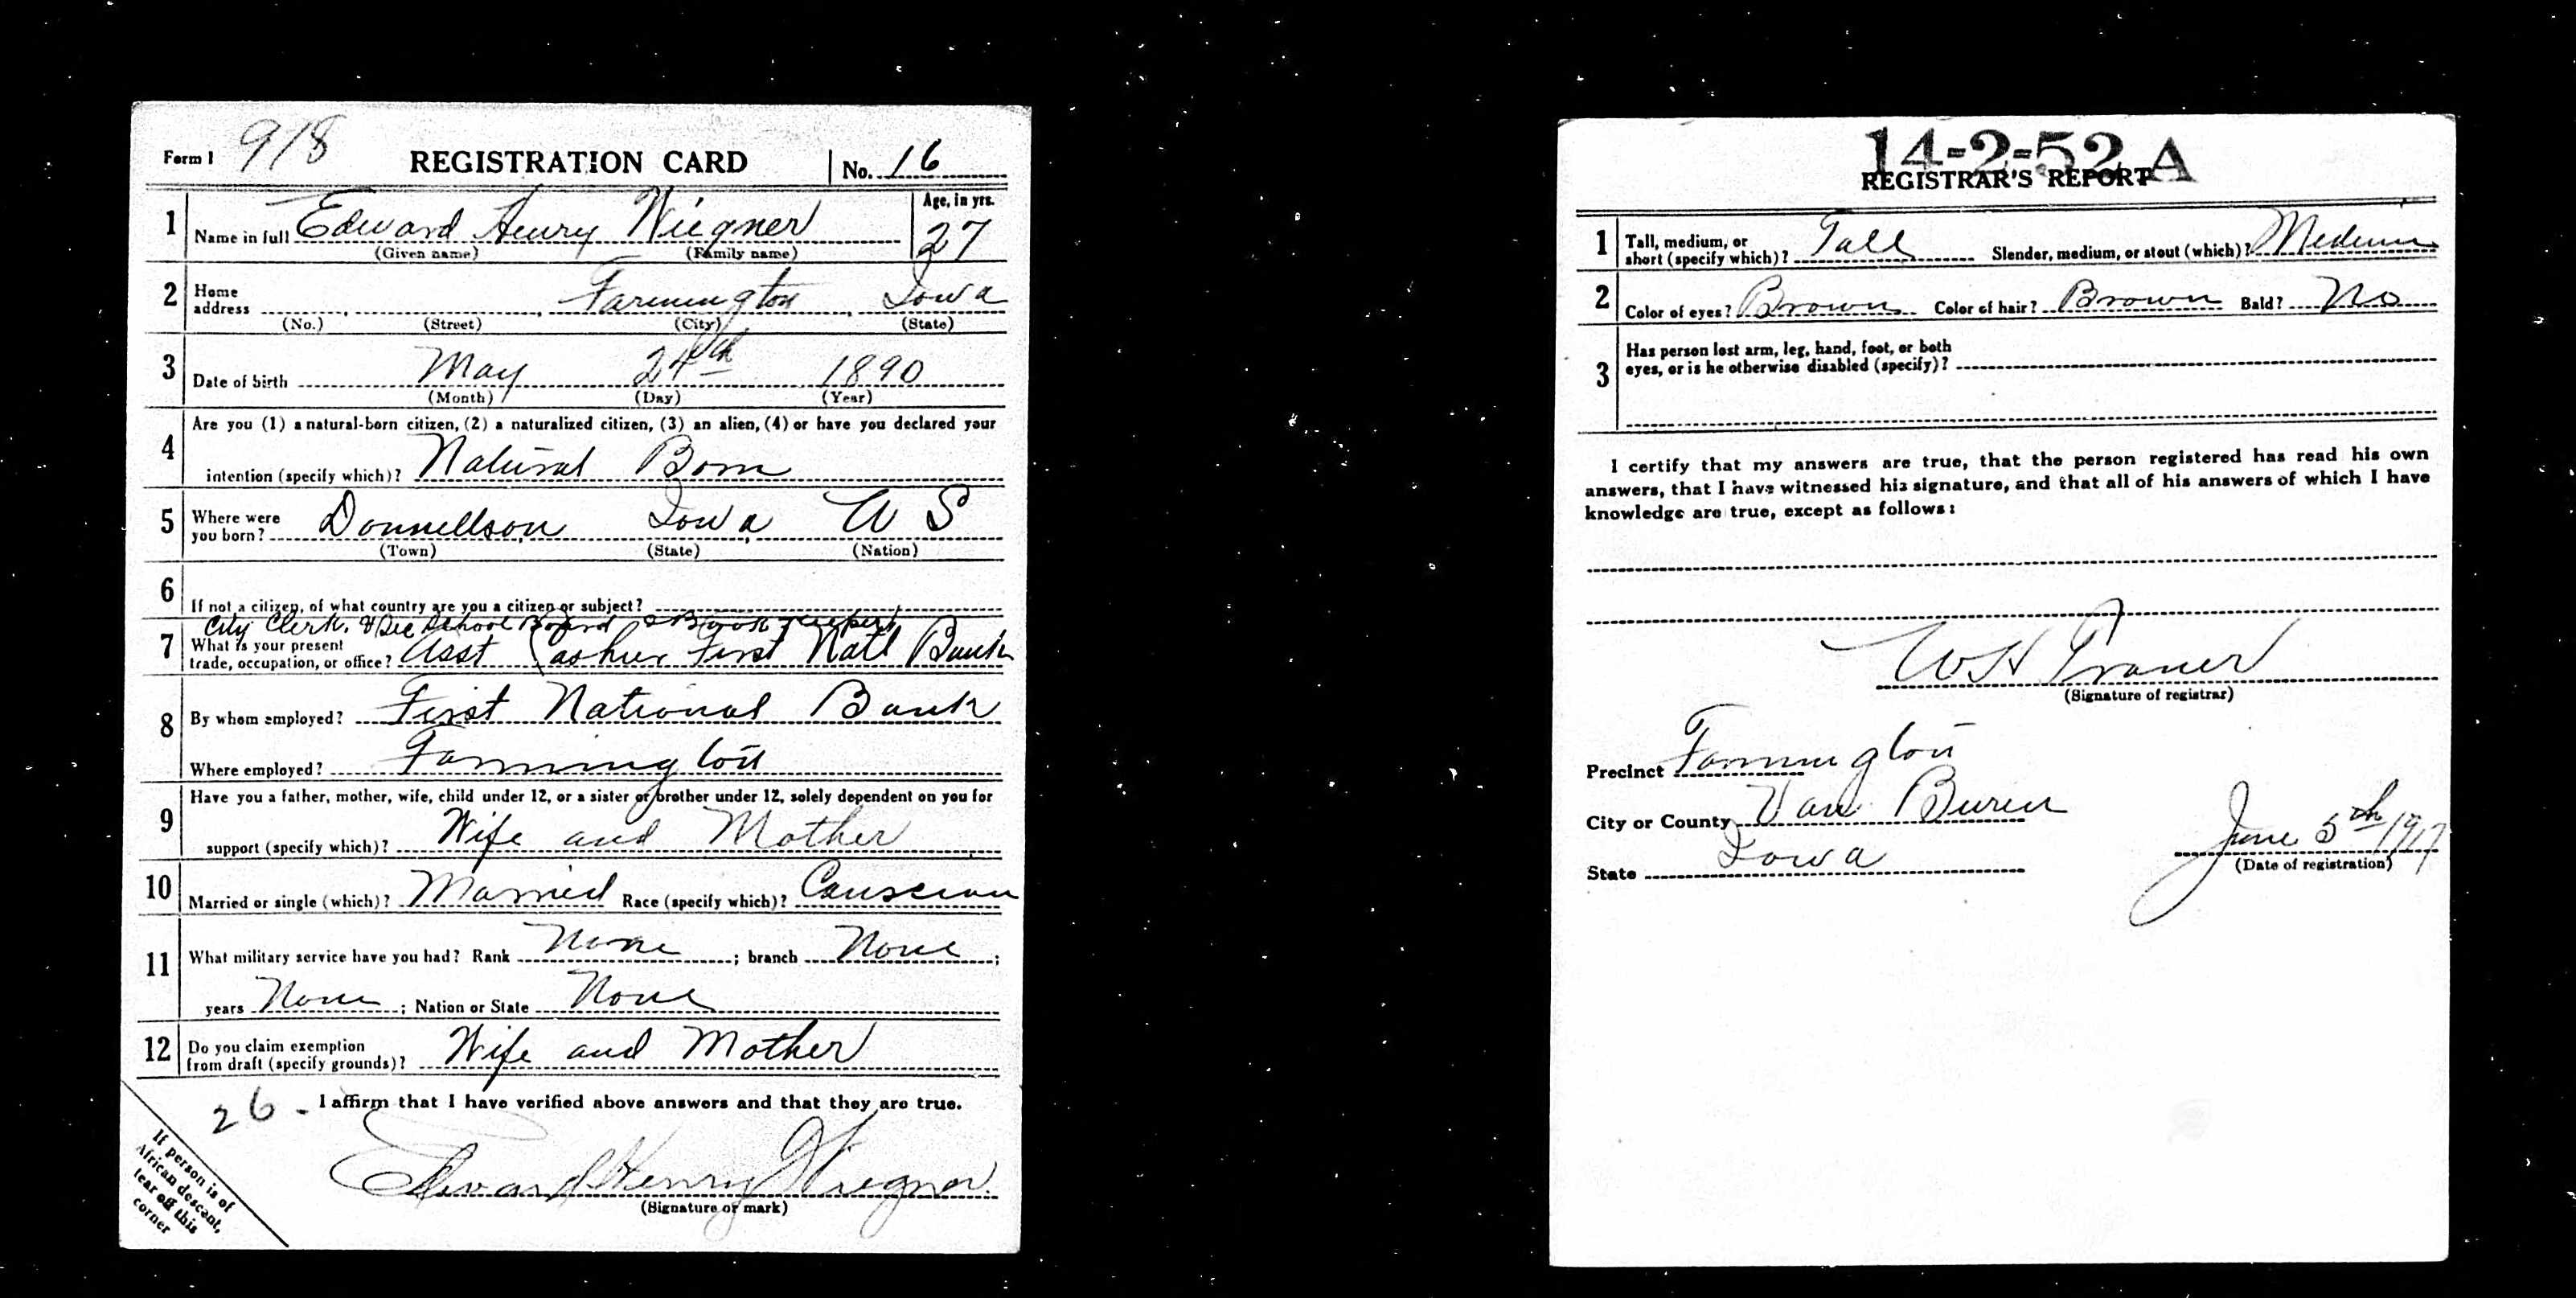 Form 1 918 REGISTRATION CARD No. 16
1 Name in full Edward Henry Wiegner Age, in yrs. 27
(Given name) (Family name)
2 Home address Farmington, Iowa
(No.) (Street) (City) (State)
3 Date of birth May 24th 1890
(Month) (Day) (Year)
4 Are you (1) a natural-born citizen, (2) a naturalized citizen, (3) an alien, (4) or have you declared your
intention (specify which)? Natural Born
5 Where were you born? Donnellson, Iowa, U S
(Town) (State) (Nation)
6 If not a citizen, of what country are you a citizen or subject?
City Clerk, & Sec School Board & Book keeper
7 What is your present trade, occupation, or office? Asst Cashier First Natl Bank
8 By whom employed? First National Bank
Where employed? Farmington
9 Have you a father, mother, wife, child under 12, or a sister or brother under 12, solely dependent on you for
support (specify which)? Wife and Mother
10 Married or single (which)? Married Race (specify which)?
11 What military service have you had? Rank None ; branch None ;
years None ; Nation or State None
12 Do you claim exemption from draft (specify grounds)? Wife and Mother
26 - I affirm that I have verified above answers and that they are true.
Edward Henry Wiegner
(Signature or mark)
If person is of
African descent,
tear off this
corner
14-2-52 A
REGISTRAR'S REPORT
1 Tall, medium, or short (specify which)? Tall Slender, medium, or stout (which)? Medium
2 Color of eyes? Brown Color of hair? Brown Bald? No
3 Has person lost arm, leg, hand, foot, or both
eyes, or is he otherwise disabled (specify)?
I certify that my answers are true, that the person registered has read his own
answers, that I have witnessed his signature, and that all of his answers of which I have
knowledge are true, except as follows:
W H
(Signature of registrar)
Precinct Farmington
City or County Van Buren
State Iowa
June 5th 1917
(Date of registration)